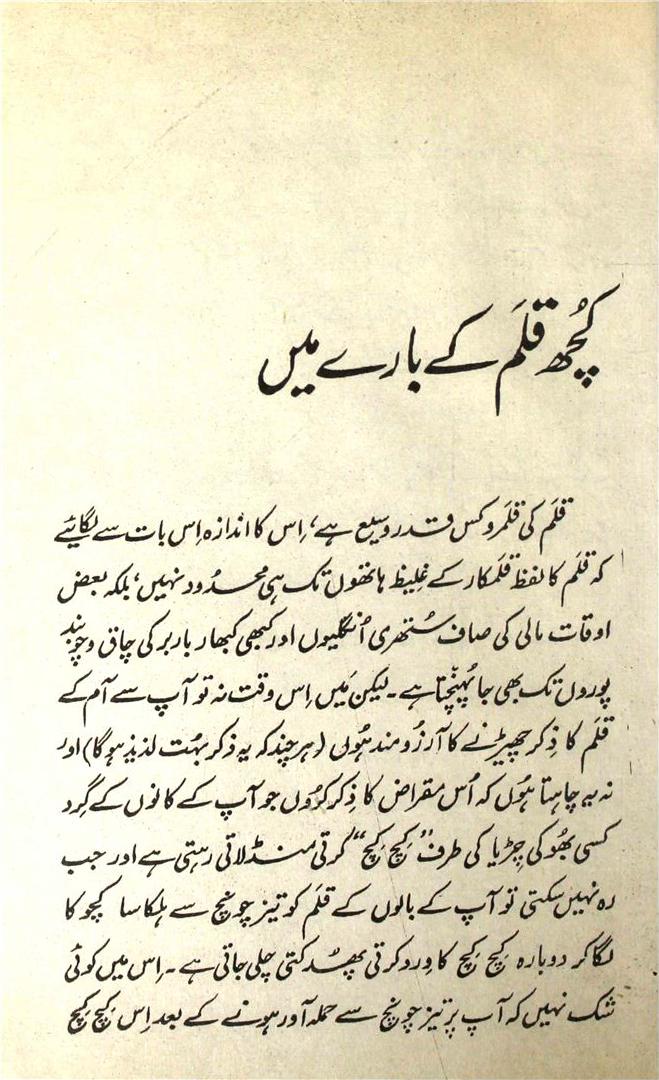 کُچھ قلَم کے بارے میں
قلَم کی قلَمرو کس قدر وسیع ہے، اِس کا اندازہ اِس بات سے لگایئے
کہ قلَم کا لفظ قلمکار کے غلیظ ہاتھوں تک ہی محدُود نہیں، بلکہ بعض
اوقات مالی کی صاف سُتھری اُنگلیوں اور کبھی کبھار باربر کی چاق و چوبند
پوروں تک بھی جا پُہنچتا ہے۔ لیکن مَیں اِس وقت نہ تو آپ سے آم کے
قلَم کا ذِکر چھیڑنے کا آرزُومند ہُوں (ہر چند کہ یہ ذکر بہُت لذیذ ہوگا) اور
نہ یہ چاہتا ہُوں کہ اُس مقراض کا ذِکر کرُوں جو آپ کے کانوں کے گِرد
کسی بھُوکی چِڑیا کی طرف ”کِچ کِچ“ کرتی منڈلاتی رہتی ہے اور جب
رہ نہیں سکتی تو آپ کے بالوں کے قلَم کو تیز چونچ سے ہلکا سا کچوکا
لگا کر دوبارہ کِچ کِچ کا وِرد کرتی پھُدکتی چلی جاتی ہے۔ اِس میں کوئی
شک نہیں کہ آپ پر تیز چونچ سے حملہ آور ہونے کے بعد اِس کِچ کِچ